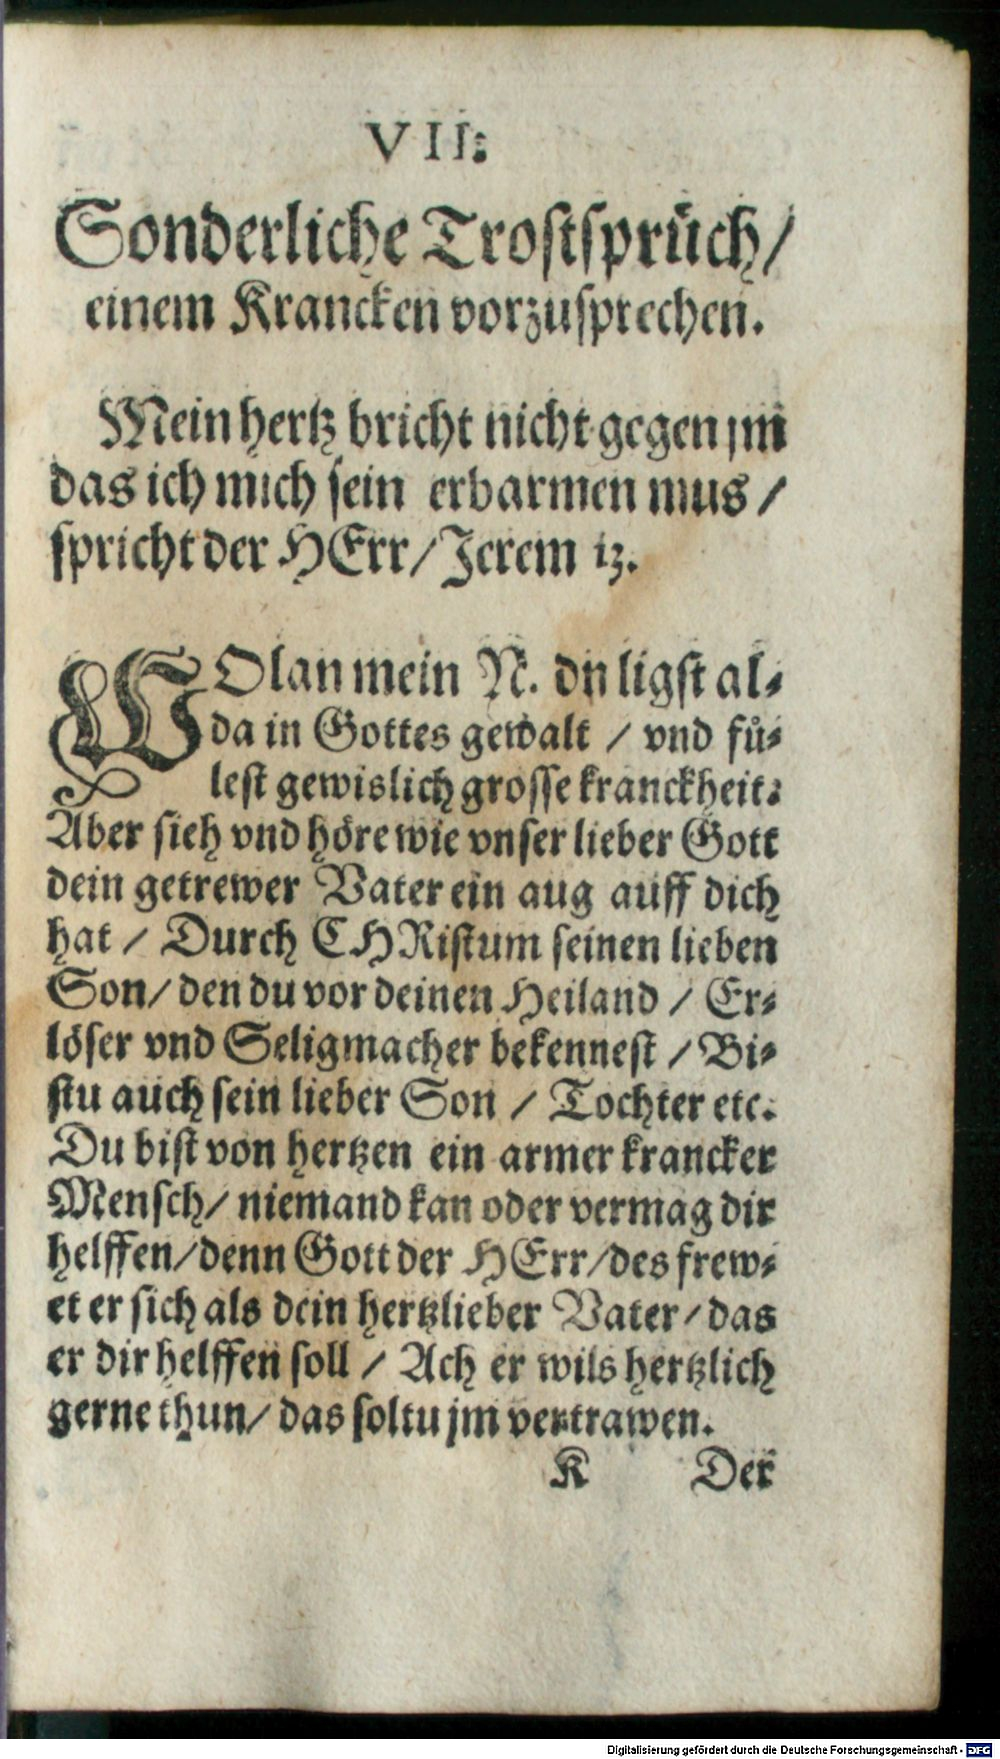 VII.
Sonderliche Trostsprüch/
einem Krancken vorzusprechen.
Mein hertz bricht nicht gegen jm
das ich mich sein erbarmen mus /
spricht der HErr/ Jerem 13.
WOlan mein N. du ligst al⸗
da in Gottes gewalt / vnd fü⸗
lest gewislich grosse kranckheit:
Aber sieh vnd höre wie vnser lieber Gott
dein getrewer Vater ein aug auff dich
hat / Durch CHRistum seinen lieben
Son/ den du vor deinen Heiland / Er⸗
löser vnd Seligmacher bekennest / Bi⸗
stu auch sein lieber Son / Tochter etc.
Du bist von hertzen ein armer krancker
Mensch/ niemand kan oder vermag dir
helffen/ denn Gott der HErr/ des frew⸗
et er sich als dein hertzlieber Vater/ das
er dir helffen soll / Ach er wils hertzlich
gerne thun/ das soltu jm vertrawen.
K Der
Digitalisierung gefördert durch die Deutsche Forschungsgemeinschaft - DFG